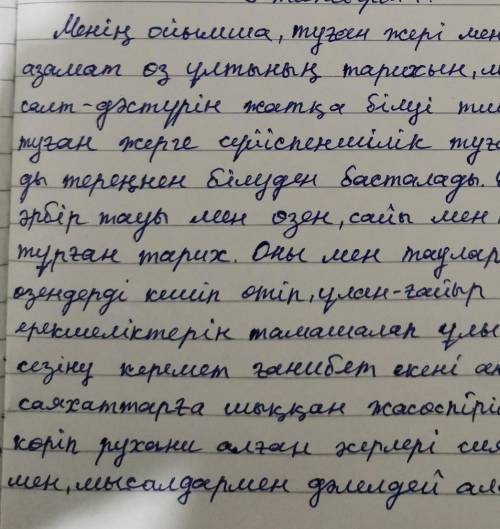 Менің ойымша, туған жері мен
азамат өз ұлтының тарихын, м
салт-дәстүрін жатқа білуі ти
туған жерге сүйіспеншілік туға
ды тереңнен білуден басталады.
әрбір тауы мен өзен, сайы мен
тұрған тарих. Оны мен таулар
өзендерді кешіп өтіп, ұлан-ғайыр
ерекшеліктерін тамашалап ұлы
сезіну керемет ғанибет екені ан
саяхаттарға шыққан жасөспірі
көріп рухани алған жерлері сия
мен, мысалдармен дәлелдей ал